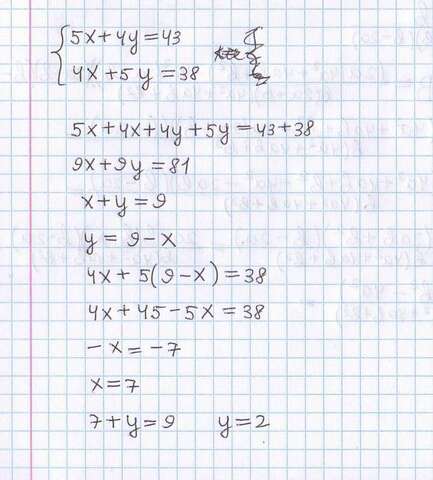 5x+4y=43
4x+5y=38
5x+4x+4y+5y=43+38
9x+9y=81
x+y=9
y=9-x
4x+5(9-x)=38
4x+45-5x=38
-x=-7
x=7
7+y=9 y=2